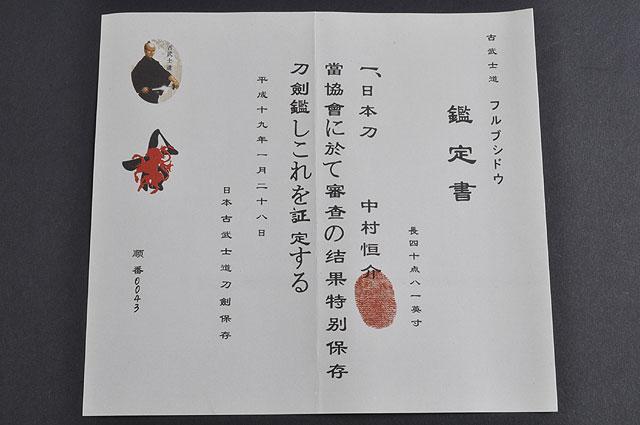 古武士道 フルブシドウ
鑑定書
長四十点八一英寸
一、日本刀 中村恒介
當協會に於て審查の结果特別保存
刀劍鑑しこれを証定する
平成十九年一月二十八日
日本古武士道刀劍保存
古武士道
順番0043